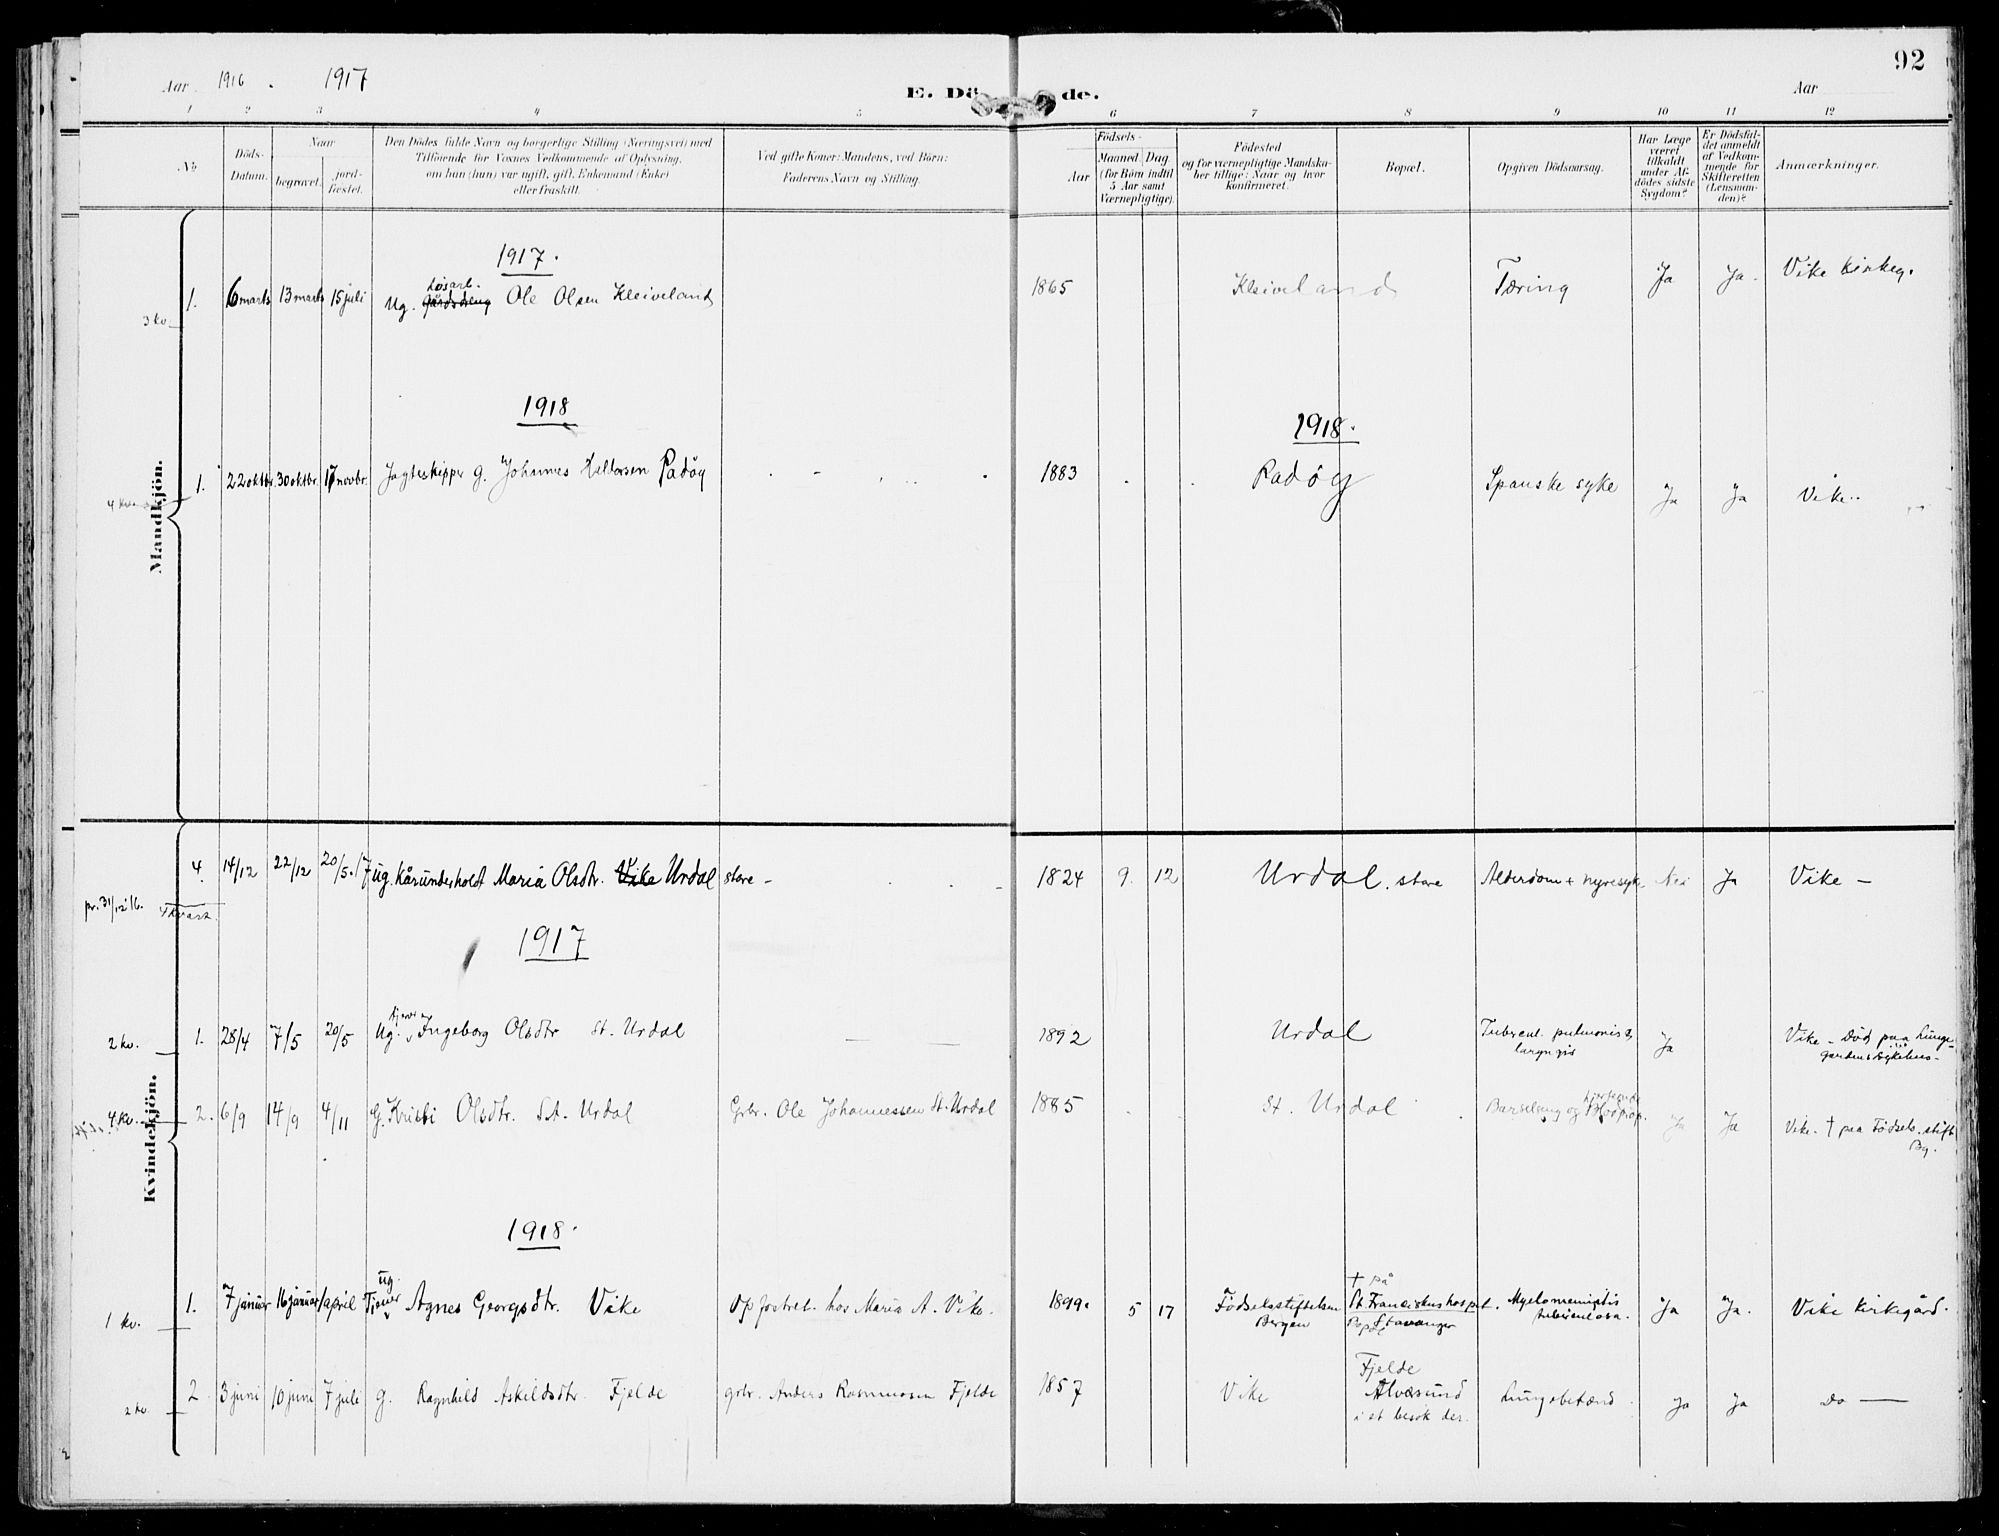 Aar 1916 . 1917
E. Dö de.
92
Aar
1 2 3 4 5 6 7 8 9 10 11 12
No
Döds-Datum.
Naar
begravet.
jord-fæstet.
Den Dödes fulde Navn og borgerlige Stilling (Næringsvei) med
Tilföiende for Voxnes Vedkommende af Oplysning,
om han (hun) var ugift, gift, Enkemand (Enke)
eller fraskilt.
Ved gifte Koner: Mandens, ved Börn:
Faderens Navn og Stilling.
Födsels-
Aar
Maaned. Dag.
(for Börn indtil
5 Aar samt
Værnepligtige).
Födested
og for værnepligtige Mandska-
ber tillige: Naar og hvor
konfirmeret.
Bopæl.
Opgiven Dödsaarsag.
Har Læge
været
tilkaldt
under Af-
dödes sidste
Sygdom?
Er Dödsfal-
det anmeldt
af Vedkom-
mende for
Skifteretten
(Lensman-
den)?
Anmærkninger.
Mandkjön.
1917.
3 kv. 1. 6 marts 13 marts 15 juli Ug. Gårdsdreng Løsarb. Ole Olsen Kleiveland 1865 Kleiveland Tæring Ja Ja. Vike kirkeg.
1918
1918.
4 kv. 1. 22 oktbr. 30 oktbr. 17 novbr. Jagteskipper g. Johannes Haldorsen Padöy 1883 Padöy Spanske syke Ja Ja Vike.
Kvindekjön.
4. 14/12 22/12 20/5.17 ug. kårunderholdt Maria Olsdtr. Vike Urdal store - 1824 9. 12 Urdal. store Alderdom + nyresyke Nei Ja Vike -
pr. 31/12 16. 4 kvart.
1917
2 kv. 1. 28/4 7/5 20/5 Ug. Ingeborg Olsdtr St. Urdal 1892 Urdal Tubercul. pulmonis & laryngis Ja Vike - Död paa Lunge-gaardens sykehus -
4 kv. 2. 6/9 14/9 4/11 G. Kristi Olsdtr. St. Urdal Grbr. Ole Johannessen St. Urdal 1885 St. Urdal Barselseng og Blodprop. Ja Ja Vike. † paa Fødsels.stift. Bg.
1918.
1 kv. 1. 7 januar 16 januar 1 april ug. Tjener Agnes Georgsdtr. Vike Opfostret hos Maria A. Vike. 1899. 5 17 Födselsstiftelsen Bergen † på St. Franciskushospit. Stavanger Myelomeningitis tuberculosa. Ja Ja. Vike kirkegård.
2 kv. 2 3 juni 10 juni 7 juli g. Ragnhild Askildsdtr. Fjelde grbr. Anders Rasmussen Fjelde 1857 Vike Fjelde Alvøsund i et besök der. Lungebetænd. Ja Ja Do